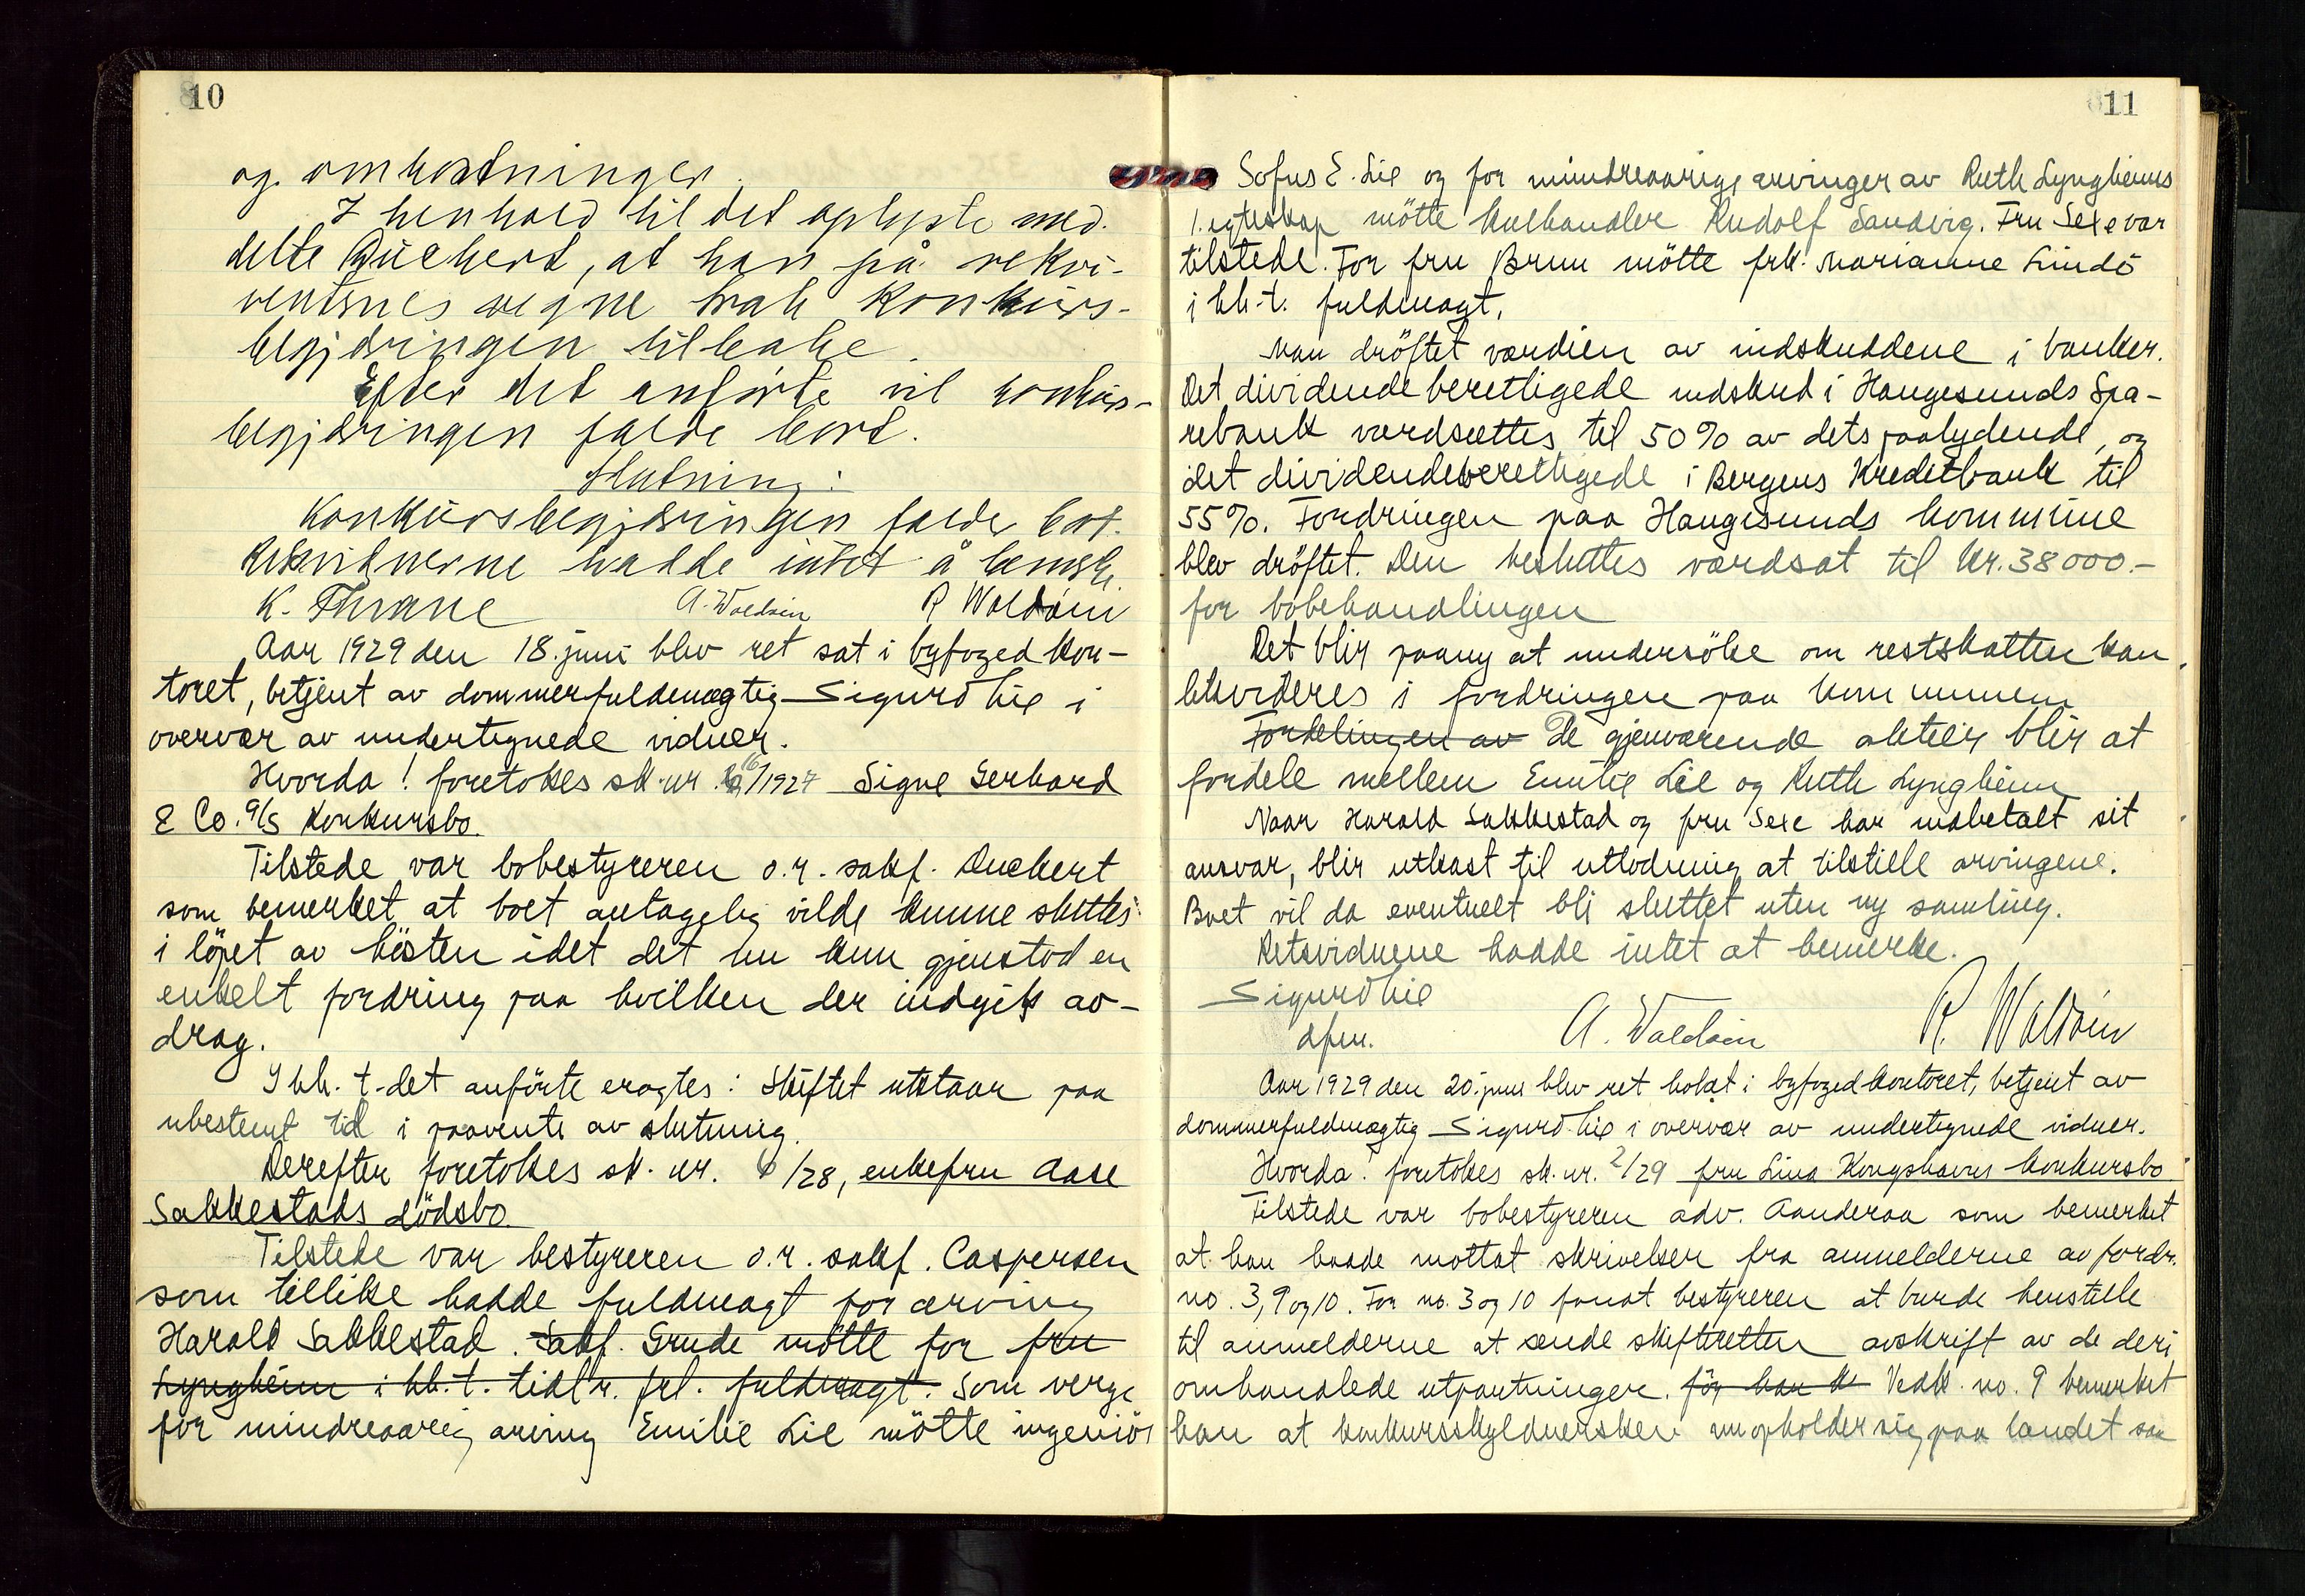 10
og omkostninger.
I henhold til det oplyste med-
delte Duckert, at han på rekvi-
rentenes vegne trak konkurs-
begjæringen tilbake.
Efter det anførte vil konkurs-
begjæringen falde bort.
Slutning:
Konkursbegjæringen falder bort.
Retsvidnerne hadde intet å bemerke.
K. Thrane A. Waldein R Waldein
Aar 1929 den 18. juni blev ret sat i byfogedkon-
toret, betjent av dommerfuldmægtig Sigurd Lie i
overvær av undertegnede vidner.
Hvorda! foretokes sk. nr. 16/1927 Signe Gerhard
& Co. A/S konkursbo.
Tilstede var bobestyreren o.r. sakf. Duckert
som bemerket at boet antagelig vilde kunne sluttes
i löpet av hösten idet det nu kun gjenstod en
enkelt fordring paa hvilken der indgik av-
drag.
I hh. t. det anförte eragtes: Skiftet utstaar paa
ubestemt tid i paavente av slutning.
Derefter foretokes sk. nr. 6/28, enkefru Aase
Sakkestads dödsbo.
Tilstede var bestyreren o.r. sakf. Caspersen
som tillike hadde fuldmagt for arving
Harald Sakkestad. Sakf. Grude mötte for fru
Lyngheim i hh. t. tidl. fr. fuldmagt. Som verge
for mindreaarig arving Emilie Lie mötte ingeniör
11
Sofus E. Lie og for mindreaarige arvinger av Ruth Lyngheims
1. egteskap mötte kulhandler Rudolf Sandvig. Fru Sexe var
tilstede. For fru Brun mötte frk. Marianne Lindö
i hh. t. fuldmagt.
Man dröftet værdien av indskuddene i banker.
Det dividendeberettigede indskud i Haugesunds Spa-
rebank værdsættes til 50% av dets paalydende, og
det dividendeberettigede i Bergens Kreditbank til
55%. Fordringen paa Haugesunds kommune
blev dröftet. Den besluttes værdsat til kr. 38000.-
for bobehandlingen
Det blir paany at undersöke om restskatten kan
likvideres i fordringen paa kommunen
Fordelingen av De gjenværende aktier blir at
fordele mellem Emilie Lie og Ruth Lyngheim
Naar Harald Sakkestad og fru Sexe har indbetalt sit
ansvar, blir utkast til utlodning at tilstille arvingene.
Boet vil da eventuelt bli sluttet uten ny samling.
Retsvidnene hadde intet at bemerke.
Sigurd Lie
dfm. A. Waldein R. Waldein
Aar 1929 den 20. juni blev ret holdt i byfogedkontoret, betjent av
dommerfuldmægtig Sigurd Lie i overvær av undertegnede vidner.
Hvorda! foretokes sk. nr. 2/29 fru Lina Kongshavns konkursbo
Tilstede var bobestyreren adv. Aanderaa som bemerket
at han hadde mottat skrivelser fra anmelderne av fordr.
no. 3, 9 og 10. For no. 3 og 10 fandt bestyreren at burde henstille
til anmelderne at sende skifteretten avskrift av de deri
omhandlede utpantninger. för han de Vedk. no. 9 bemerket
han at konkursskyldnersken nu opholder sig paa landet saa